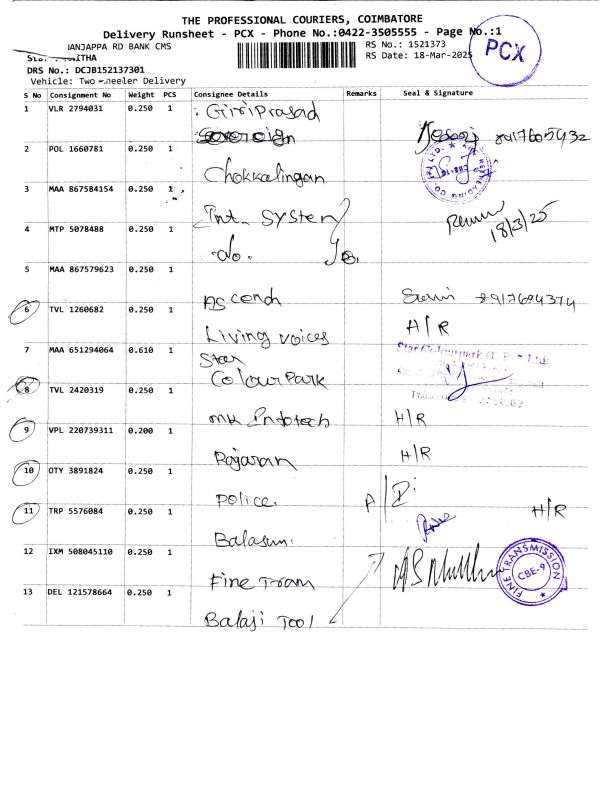 THE PROFESSIONAL COURIERS, COIMBATORE
Delivery Runsheet - PCX - Phone No.:0422-3505555 - Page No.:1
NANJAPPA RD BANK CMS
RS No.: 1521373
RS Date: 18-Mar-2025
PCX
DRS No.: DCJB152137301
Vehicle: Two wheeler Delivery
S No Consignment No Weight PCS Consignee Details Remarks Seal & Signature
1 VLR 2794031 0.250 1 Giri Prasad
Sovereign
2 POL 1660781 0.250 1
Chokkalingam
3 MAA 867584154 0.250 1
Int. System
18/3/25
4 MTP 5078488 0.250 1
5 MAA 867579623 0.250 1
Ascend 8917604374
6 TVL 1260682 0.250 1 H/R
Living voices
7 MAA 651294064 0.610 1 Star
Colour Park
8 TVL 2420319 0.250 1
MK Infotech H/R
9 VPL 220739311 0.200 1
Rajaran H/R
10 OTY 3891824 0.250 1
Police
11 TRP 5576084 0.250 1 H/R
Balasun.
12 IXM 508045110 0.250 1
Fine Tran
FINE TRANSMISSION
CBE-9
13 DEL 121578664 0.250 1
Balaji Tool